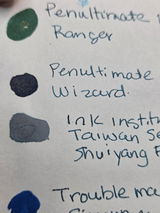 Penultimate
Ranger
Penultimate
Wizard
Ink Instit
Taiwan Se
Shuiyang
Trouble ma